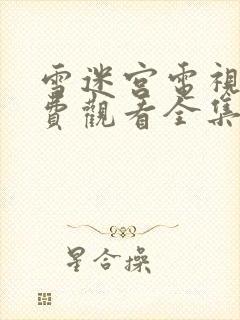 雪迷宮電視
費觀看全集
星合操